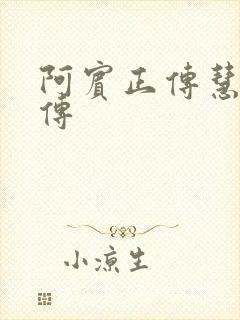 阿賓正傳慧
傳
小涼生